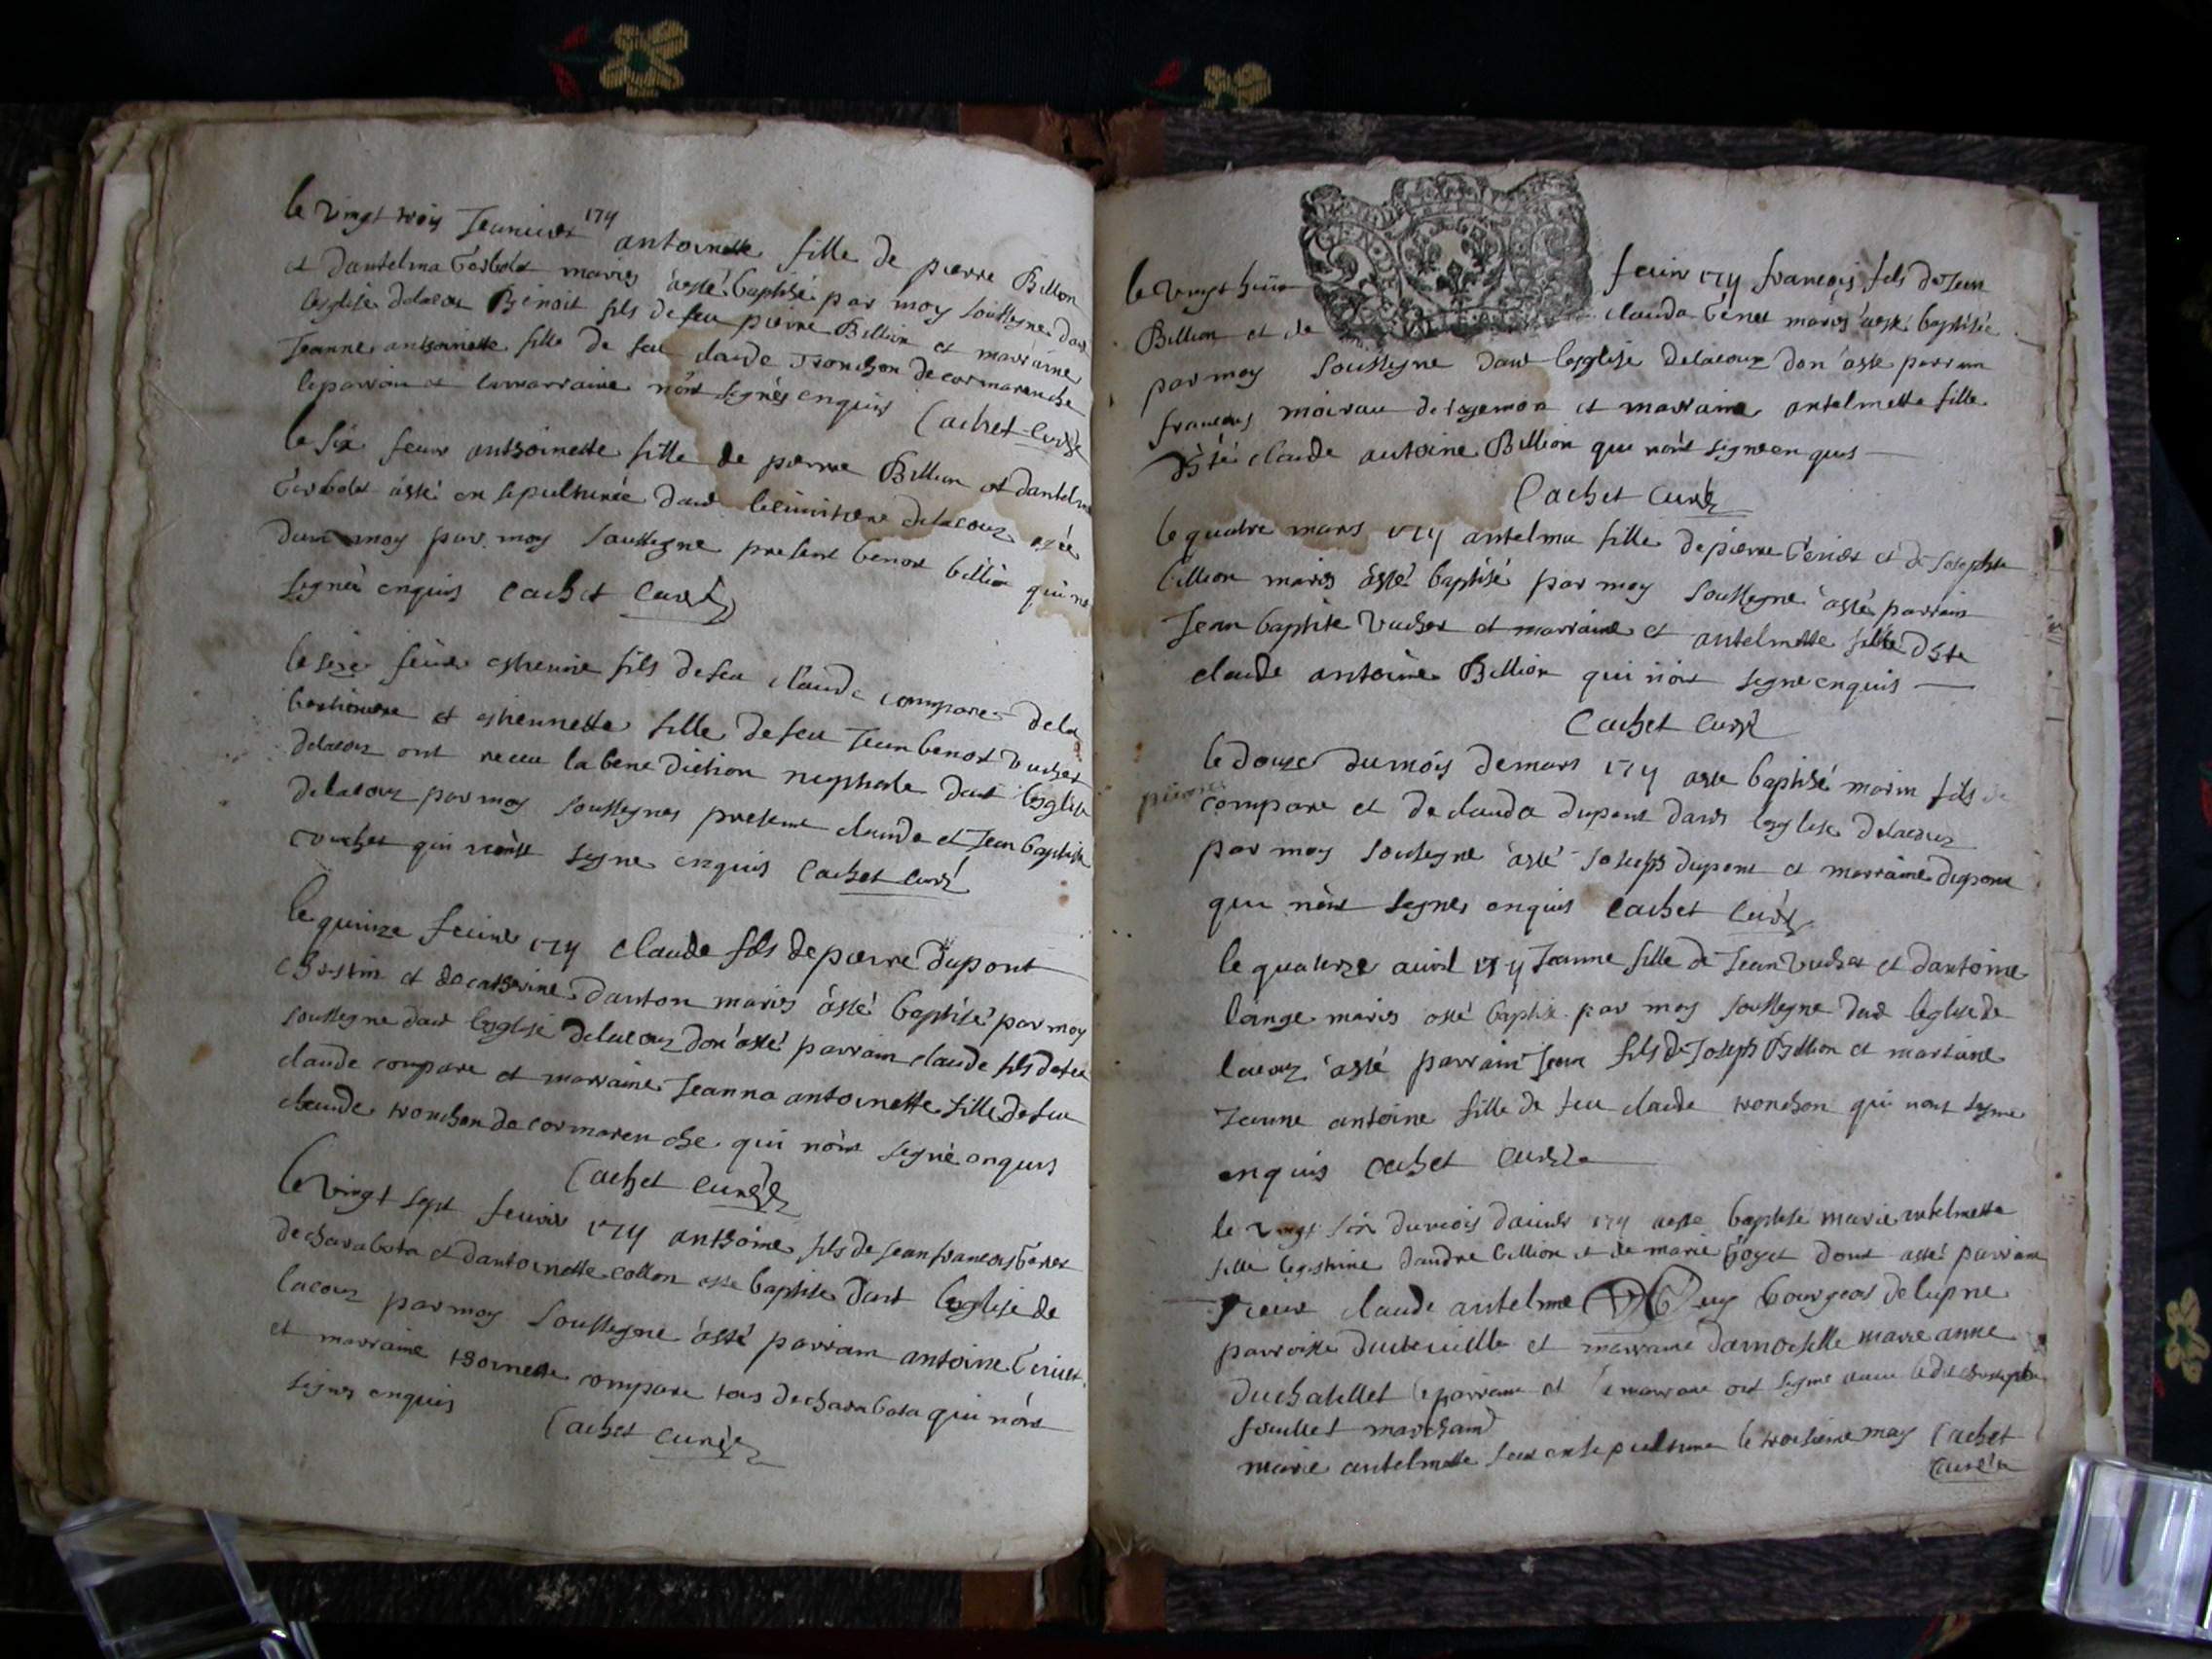 le vingt trois Jeanvier 1711 antoinette fille de pierre Billon
et dantelma Gerbolet maries a esté baptisé par moy soussigne dans
lesglise delacoux Benoit fils de feu pierre Billion et marraine
Jeanne anthoinette fille de feu claude Tronchon de cormarenche
leparrain et lamarraine nont signés enquis Cachet Curé
le six feuvr anthoinette fille de pierre Billion et dantelme
Gerbolet a esté en sepulturée dans le cimitiere delacoux agée
dun moy par moy soussigne present benoit billion qui na
signé enquis Cachet Curé
le seize feuvr estienne fils defeu claude compare dela
et estiennette fille defeu Jean benoit vuchet
delacoux ont receu la bene diction nuptiale dans lesglise
delacoux par moy soussignes presens claude et Jean baptiste
vuchet qui nont signe enquis Cachet Curé
le quinze feuvrier 1711 claude fils de pierre dupont
et de catherine danton maries a esté baptisé par moy
soussigne dans lesglise delacoux don a esté parrain claude fils defeu
claude compare et marraine Jeanna antoinette fille defeu
claude tronchon de cormarenche qui nont signé enquis
Cachet Curé
le vingt sept feuvrier 1711 anthoine fils de Jean francois
de charabota et dantoinette collon a esté baptise dans lesglise de
lacoux par moy soussigne a esté parrain antoine
et marraine thoinette compare tous de charabota qui nont
signes enquis
Cachet Curé
le vingt huit feuvr 1711 francois fils de Jean
Billion et de clauda maries a esté baptisée
par moy soussigne dans lesglise delacoux don a este parrain
francois et marraine antelmette fille
claude antoine Billion qui nont signe enquis
Cachet Curé
le quatre mars 1711 antelma fille de pierre et de Josephte
billion maries a esté baptisé par moy soussigne a esté parrain
Jean baptiste vuchet et marraine et antelmette fille
claude antoine Billion qui nont signe enquis
Cachet Curé
le douze dumois demars 1711 a este baptisé marin fils de
pierre compare et de clauda dupont dans lesglise delacoux
par moy soussigne a esté Joseph dupont et marraine dupont
qui nont signes enquis Cachet Curé
le quatorze avril 1711 Jeanne fille de Jean vuchet et dantoine
lange maries a esté baptise par moy soussigne dans leglise de
lacoux a esté parrain Jean fils de Joseph Billion et marraine
Jeanne antoine fille de feu claude tronchon qui nont signe
enquis Cachet Curé
le vingt six dumois 1711 a este baptise marie antelmette
fille legitime dandre billion et de marie goyet dont a esté parrain
sieur claude antelme bourgeois
parroisse et marraine damoiselle marie anne
duchatellet le parrain et la marraine ont signe avec
marchand
marie antelmette en sepulture le troisieme may Cachet
Curé